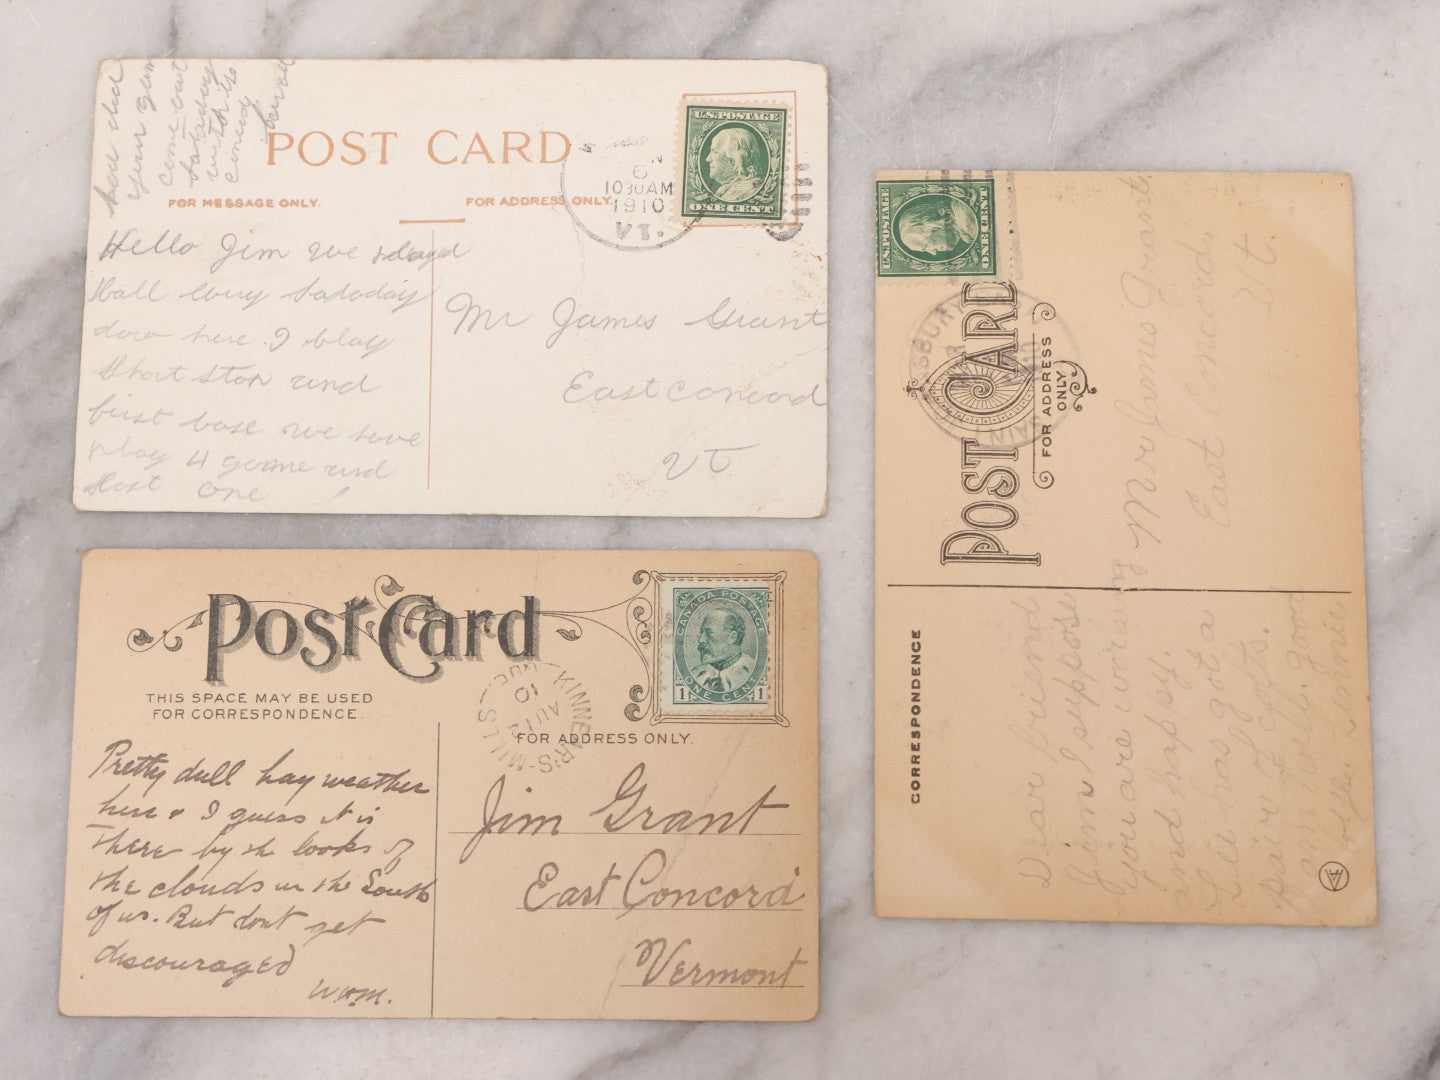 how did
your game
come out
Saturday
with the
Concord
POST CARD
FOR MESSAGE ONLY.
FOR ADDRESS ONLY.
U.S.POSTAGE
ONE CENT
6
1030AM
1910
VT.
Hello Jim we
Ball every Satoday
down here I play
Short Stop and
first base we have
play 4 game and
Host one
Mr James Grant
East Concord
VT
Post Card
THIS SPACE MAY BE USED
FOR CORRESPONDENCE.
FOR ADDRESS ONLY.
CANADA POSTAGE
1 ONE CENT 1
KINNEAR'S-MILLS
AU 12
10
Pretty dull hay weather
here & I guess it is
there by the looks of
the clouds in the South
of us. But dont get
discouraged
WHM.
Jim Grant
East Concord
Vermont
U.S.POSTAGE
ONE CENT
POST CARD
FOR ADDRESS
ONLY
Mr James Grant
East Concord,
Vt.
CORRESPONDENCE
Dear friend
Jim I suppose
you are working
and happy.
Lu has got a
pair of colts.
am very good